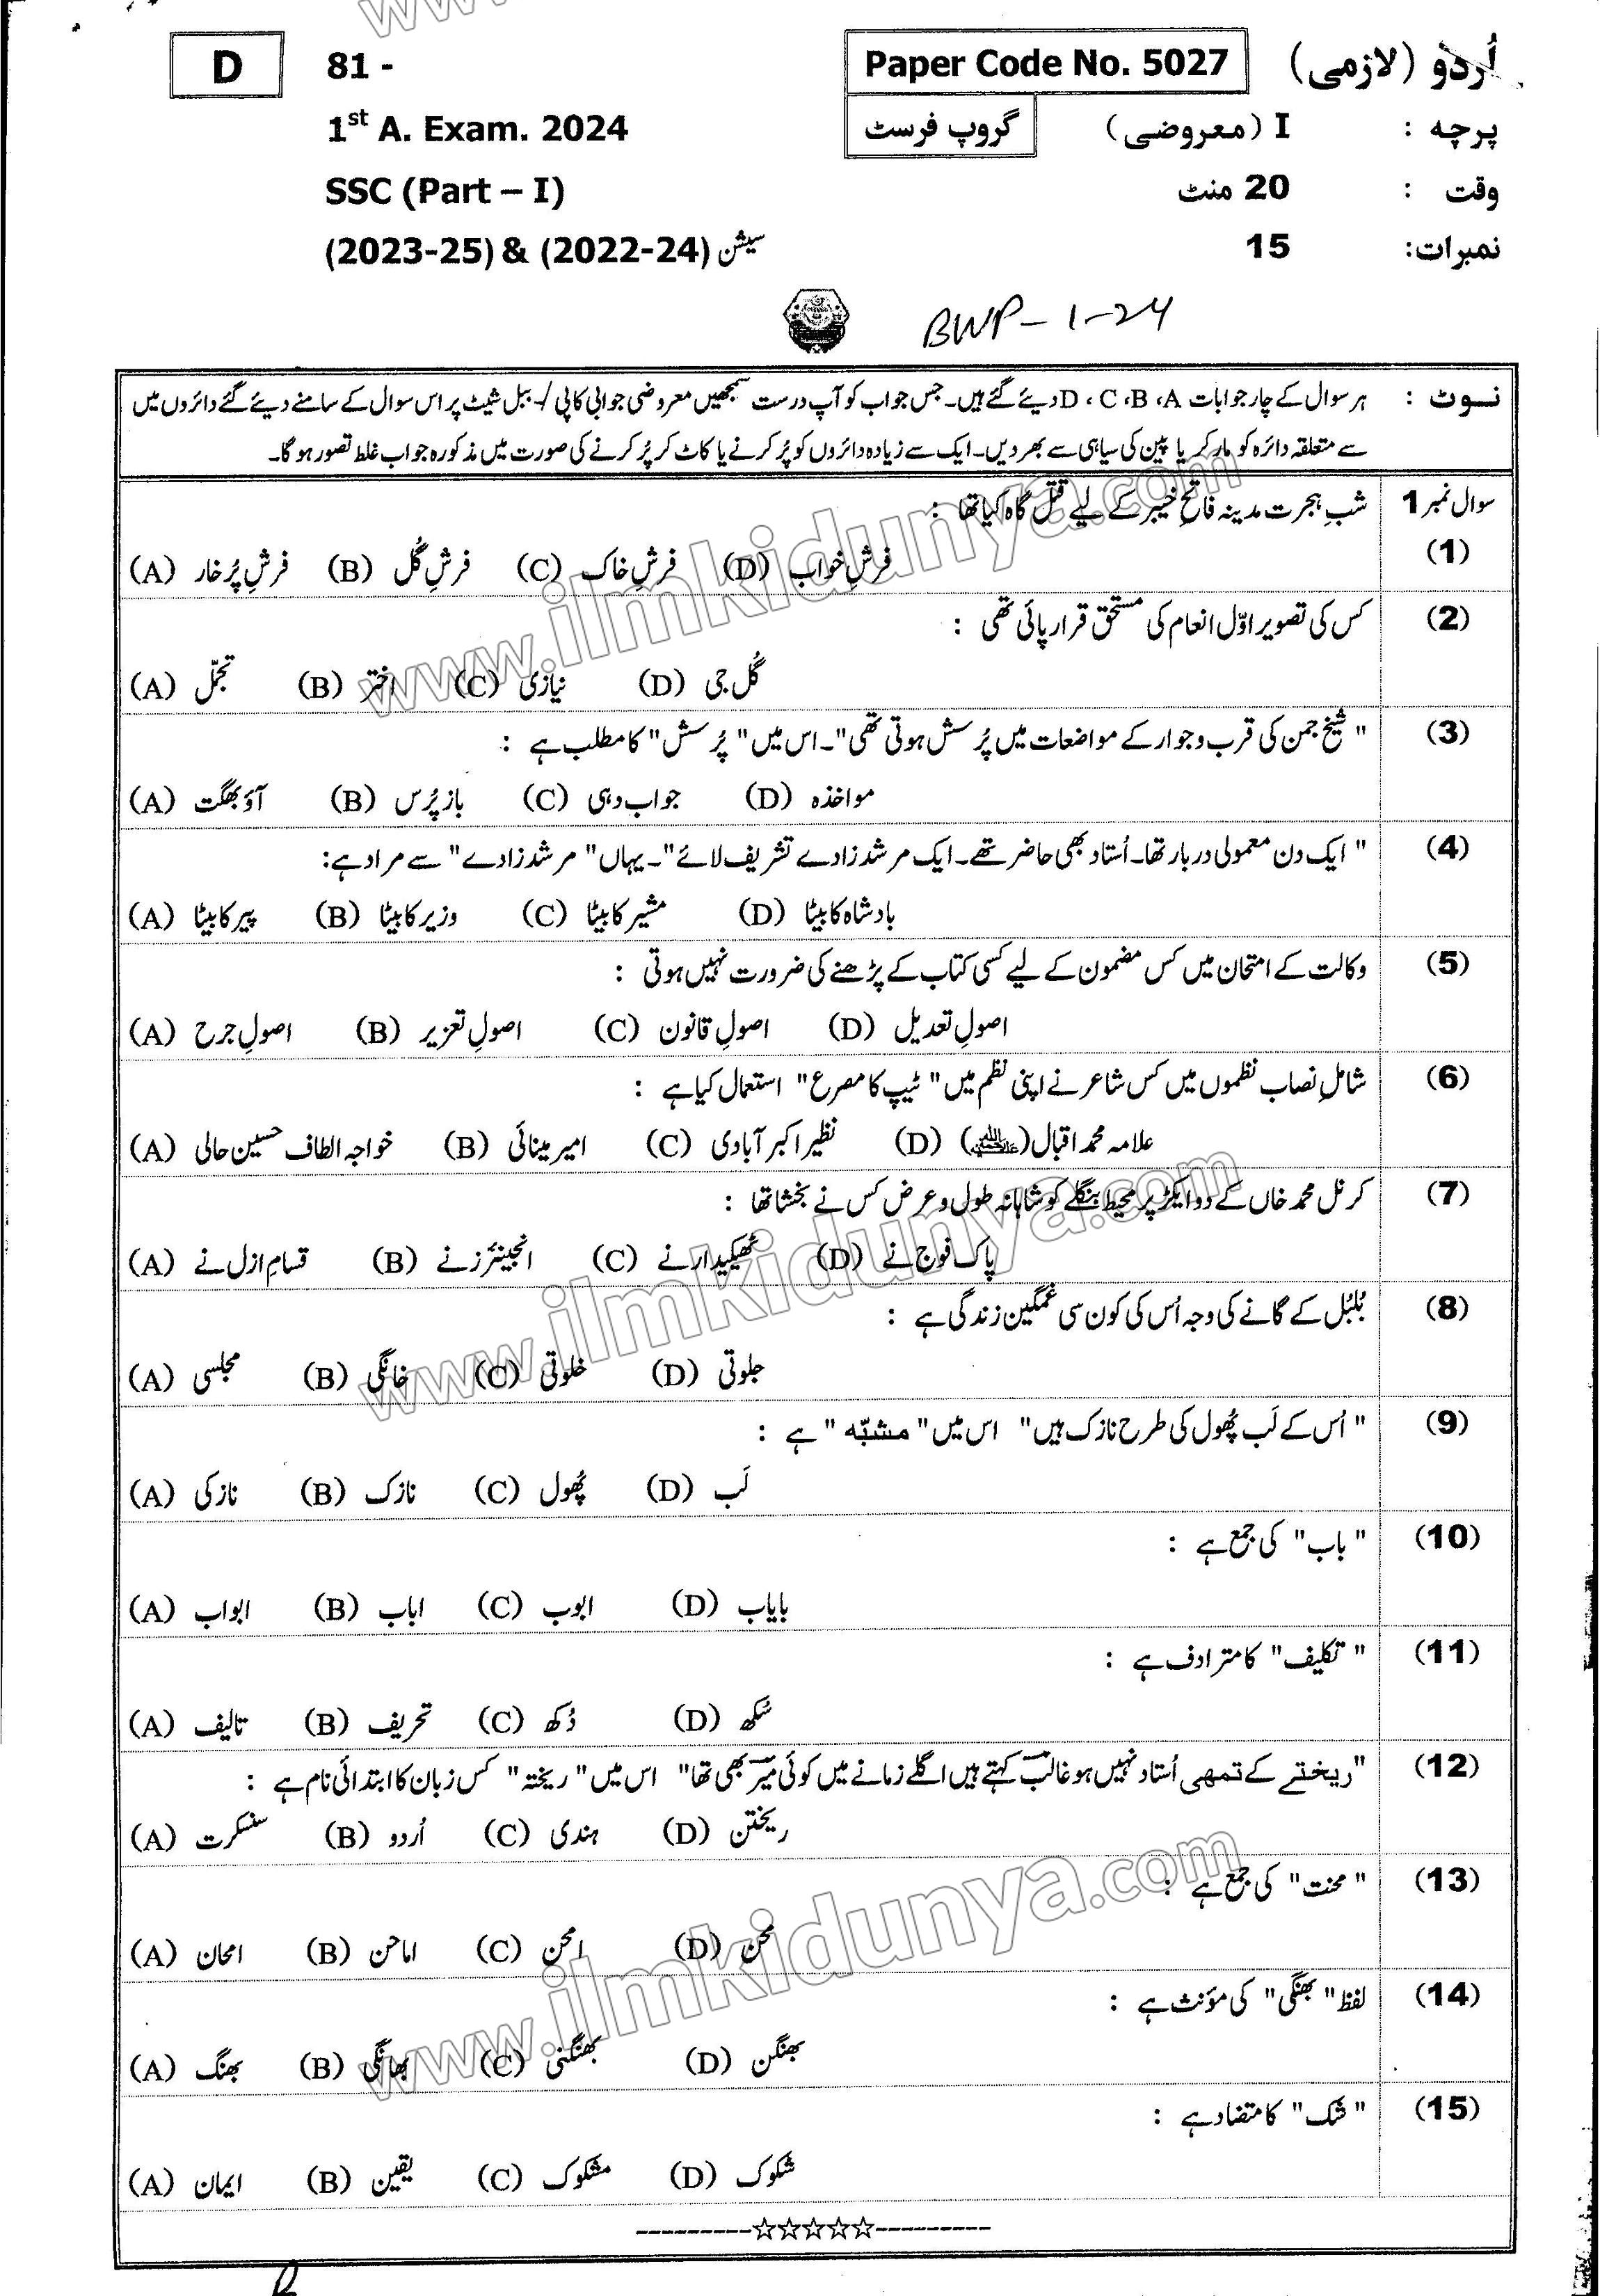 D
81 -
Paper Code No. 5027
اُردو (لازمی)
1st A. Exam. 2024
گروپ فرسٹ
پرچہ : I (معروضی)
SSC (Part – I)
وقت : 20 منٹ
سیشن (2022-24) & (2023-25)
نمبرات: 15
BWP-1-24
نوٹ : ہر سوال کے چار جوابات A، B، C، D دیئے گئے ہیں۔ جس جواب کو آپ درست سمجھیں معروضی جوابی کاپی / ببل شیٹ پر اس سوال کے سامنے دیئے گئے دائروں میں
سے متعلقہ دائرہ کو مارکر یا پین کی سیاہی سے بھر دیں۔ ایک سے زیادہ دائروں کو پُر کرنے یا کاٹ کر پُر کرنے کی صورت میں مذکورہ جواب غلط تصور ہو گا۔
سوال نمبر 1 شبِ ہجرت مدینہ فاتح خیبر کے لیے قتل گاہ کیا تھا :
(1) (A) فرشِ پُر خار (B) فرشِ گُل (C) فرشِ خاک (D) فرشِ خواب
(2) کس کی تصویر اوّل انعام کی مستحق قرار پائی تھی :
(A) تجمّل (B) اختر (C) نیازی (D) گُل جی
(3) " شیخ جمن کی قرب و جوار کے مواضعات میں پُرسش ہوتی تھی"۔ اس میں "پُرسش" کا مطلب ہے :
(A) آؤ بھگت (B) باز پُرس (C) جواب دہی (D) مواخذہ
(4) " ایک دن معمولی دربار تھا۔ اُستاد بھی حاضر تھے۔ ایک مرشد زادے تشریف لائے"۔ یہاں "مرشد زادے" سے مراد ہے:
(A) پیر کا بیٹا (B) وزیر کا بیٹا (C) مشیر کا بیٹا (D) بادشاہ کا بیٹا
(5) وکالت کے امتحان میں کس مضمون کے لیے کسی کتاب کے پڑھنے کی ضرورت نہیں ہوتی :
(A) اصولِ جرح (B) اصولِ تعزیر (C) اصولِ قانون (D) اصولِ تعدیل
(6) شاملِ نصاب نظموں میں کس شاعر نے اپنی نظم میں "ٹیپ کا مصرع" استعمال کیا ہے :
(A) خواجہ الطاف حسین حالی (B) امیر مینائی (C) نظیر اکبر آبادی (D) علامہ محمد اقبال
(7) کرنل محمد خاں کے دو ایکڑ پر محیط بنگلے کو شاہانہ طول و عرض کس نے بخشا تھا :
(A) قسامِ ازل نے (B) انجینئرز نے (C) ٹھیکیدار نے (D) پاک فوج نے
(8) بُلبُل کے گانے کی وجہ اُس کی کون سی غمگین زندگی ہے :
(A) مجلسی (B) خانگی (C) خلوتی (D) جلوتی
(9) " اُس کے لَب پُھول کی طرح نازک ہیں" اس میں "مشبّہ" ہے :
(A) نازکی (B) نازک (C) پُھول (D) لَب
(10) "باب" کی جمع ہے :
(A) ابواب (B) اباب (C) ابوب (D) بایاب
(11) "تکلیف" کا مترادف ہے :
(A) تالیف (B) تحریف (C) دُکھ (D) سُکھ
(12) "ریختے کے تمھی اُستاد نہیں ہو غالبؔ کہتے ہیں اگلے زمانے میں کوئی میرؔ بھی تھا" اس میں "ریختہ" کس زبان کا ابتدائی نام ہے :
(A) سنسکرت (B) اُردو (C) ہندی (D) ریختن
(13) "محنت" کی جمع ہے :
(A) امحان (B) اماحن (C) امحن (D) محن
(14) لفظ "بھنگی" کی مؤنث ہے :
(A) بھنگ (B) بھانگی (C) بھنگنی (D) بھنگن
(15) "شک" کا متضاد ہے :
(A) ایمان (B) یقین (C) مشکوک (D) شکوک
---------☆☆☆☆☆---------
www.ilmkidunya.com
www.ilmkidunya.com
www.ilmkidunya.com